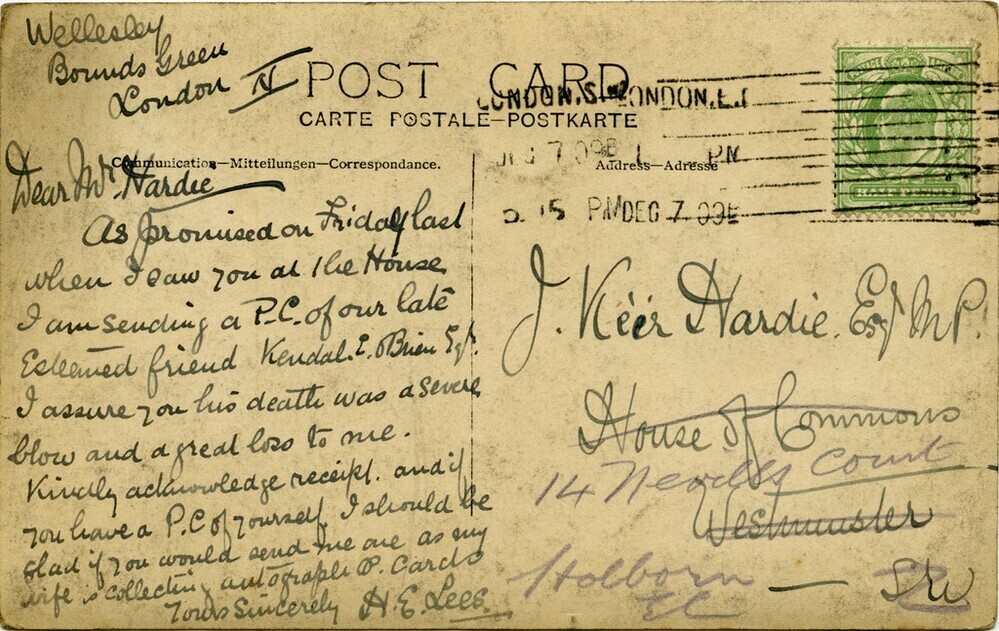 Wellesley
Bounds Green
London N
POST CARD
CARTE POSTALE—POSTKARTE
Communication—Mitteilungen—Correspondance.
Address—Adresse
LONDON.S.W LONDON.
DEC 7 09
PM
5.15 PM DEC 7 09
HALFPENNY
Dear Mr. Hardie
As promised on Friday last
when I saw you at the House
I am sending a P.C. of our late
Esteemed friend Kendal. E. O'Brien Esqr.
I assure you his death was a severe
blow and a great loss to me.
Kindly acknowledge receipt. and if
you have a P.C of yourself, I should be
glad if you would send me one as my
wife is collecting autograph P. Cards
Yours Sincerely H. E. Lees
J. Keir Hardie. Esq M.P.
House of Commons
14 Nevills Court
Westminster
Holborn
EC
SW